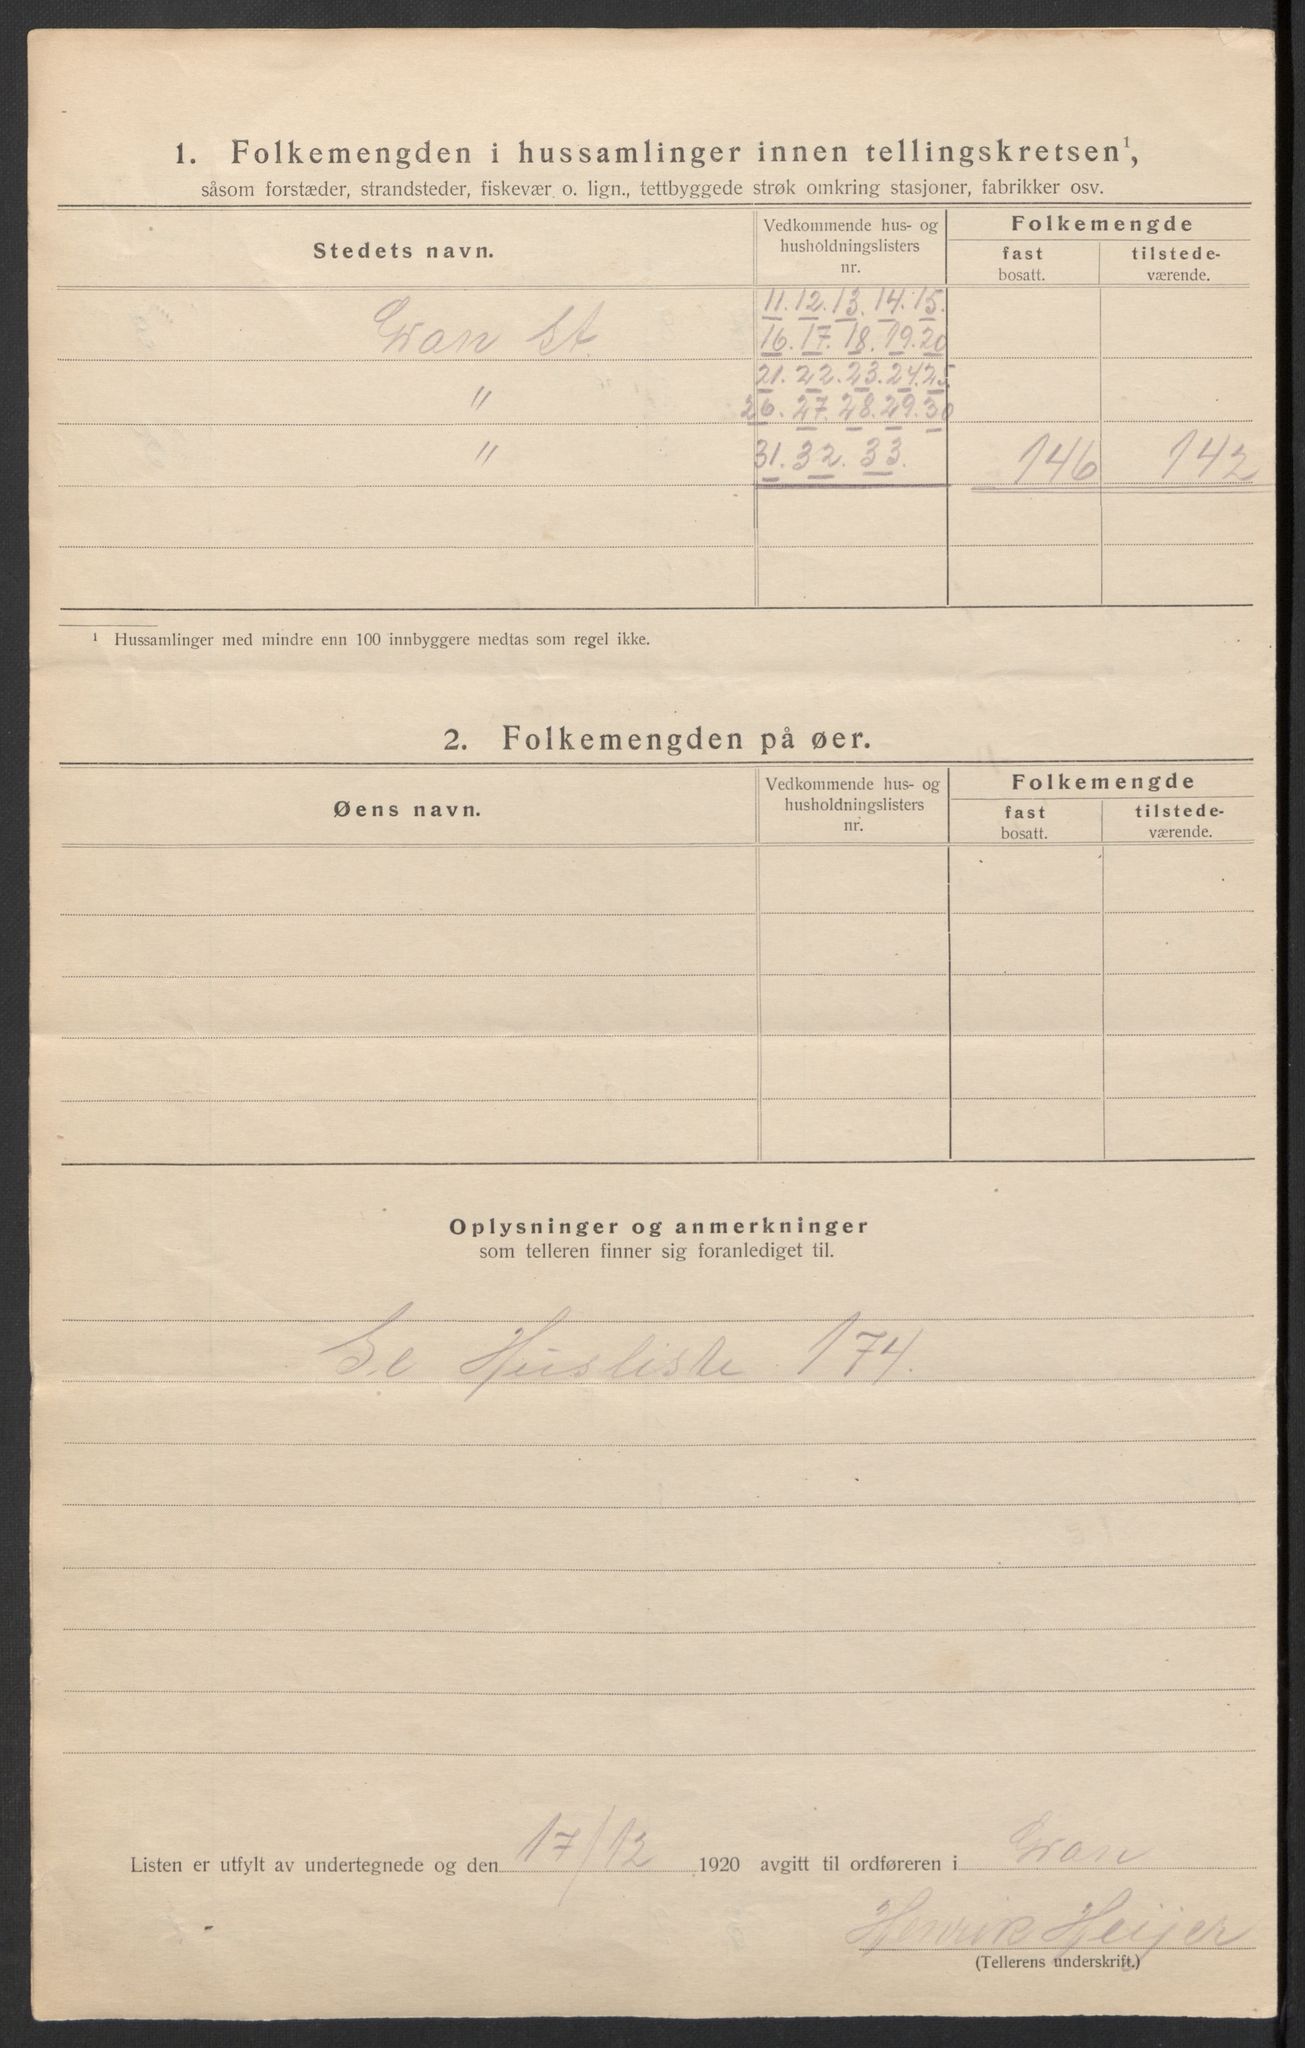 1. Folkemengden i hussamlinger innen tellingskretsen¹,
såsom forstæder, strandsteder, fiskevær o. lign., tettbyggede strøk omkring stasjoner, fabrikker osv.
Stedets navn.
Vedkommende hus- og
husholdningslisters
nr.
Folkemengde
fast
bosatt.
tilstede-
værende.
11. 12. 13. 14. 15.
Gran St. 16. 17. 18. 19. 20
21. 22. 23. 24. 25.
" 26. 27. 28. 29. 30
" 31. 32. 33. 146 142
¹ Hussamlinger med mindre enn 100 innbyggere medtas som regel ikke.
2. Folkemengden på øer.
Øens navn.
Vedkommende hus- og
husholdningslisters
nr.
Folkemengde
fast
bosatt.
tilstede-
værende.
Oplysninger og anmerkninger
som telleren finner sig foranlediget til.
Se Husliste 174.
Listen er utfylt av undertegnede og den 17/12 1920 avgitt til ordføreren i Gran
Henrik Heijer
(Tellerens underskrift.)